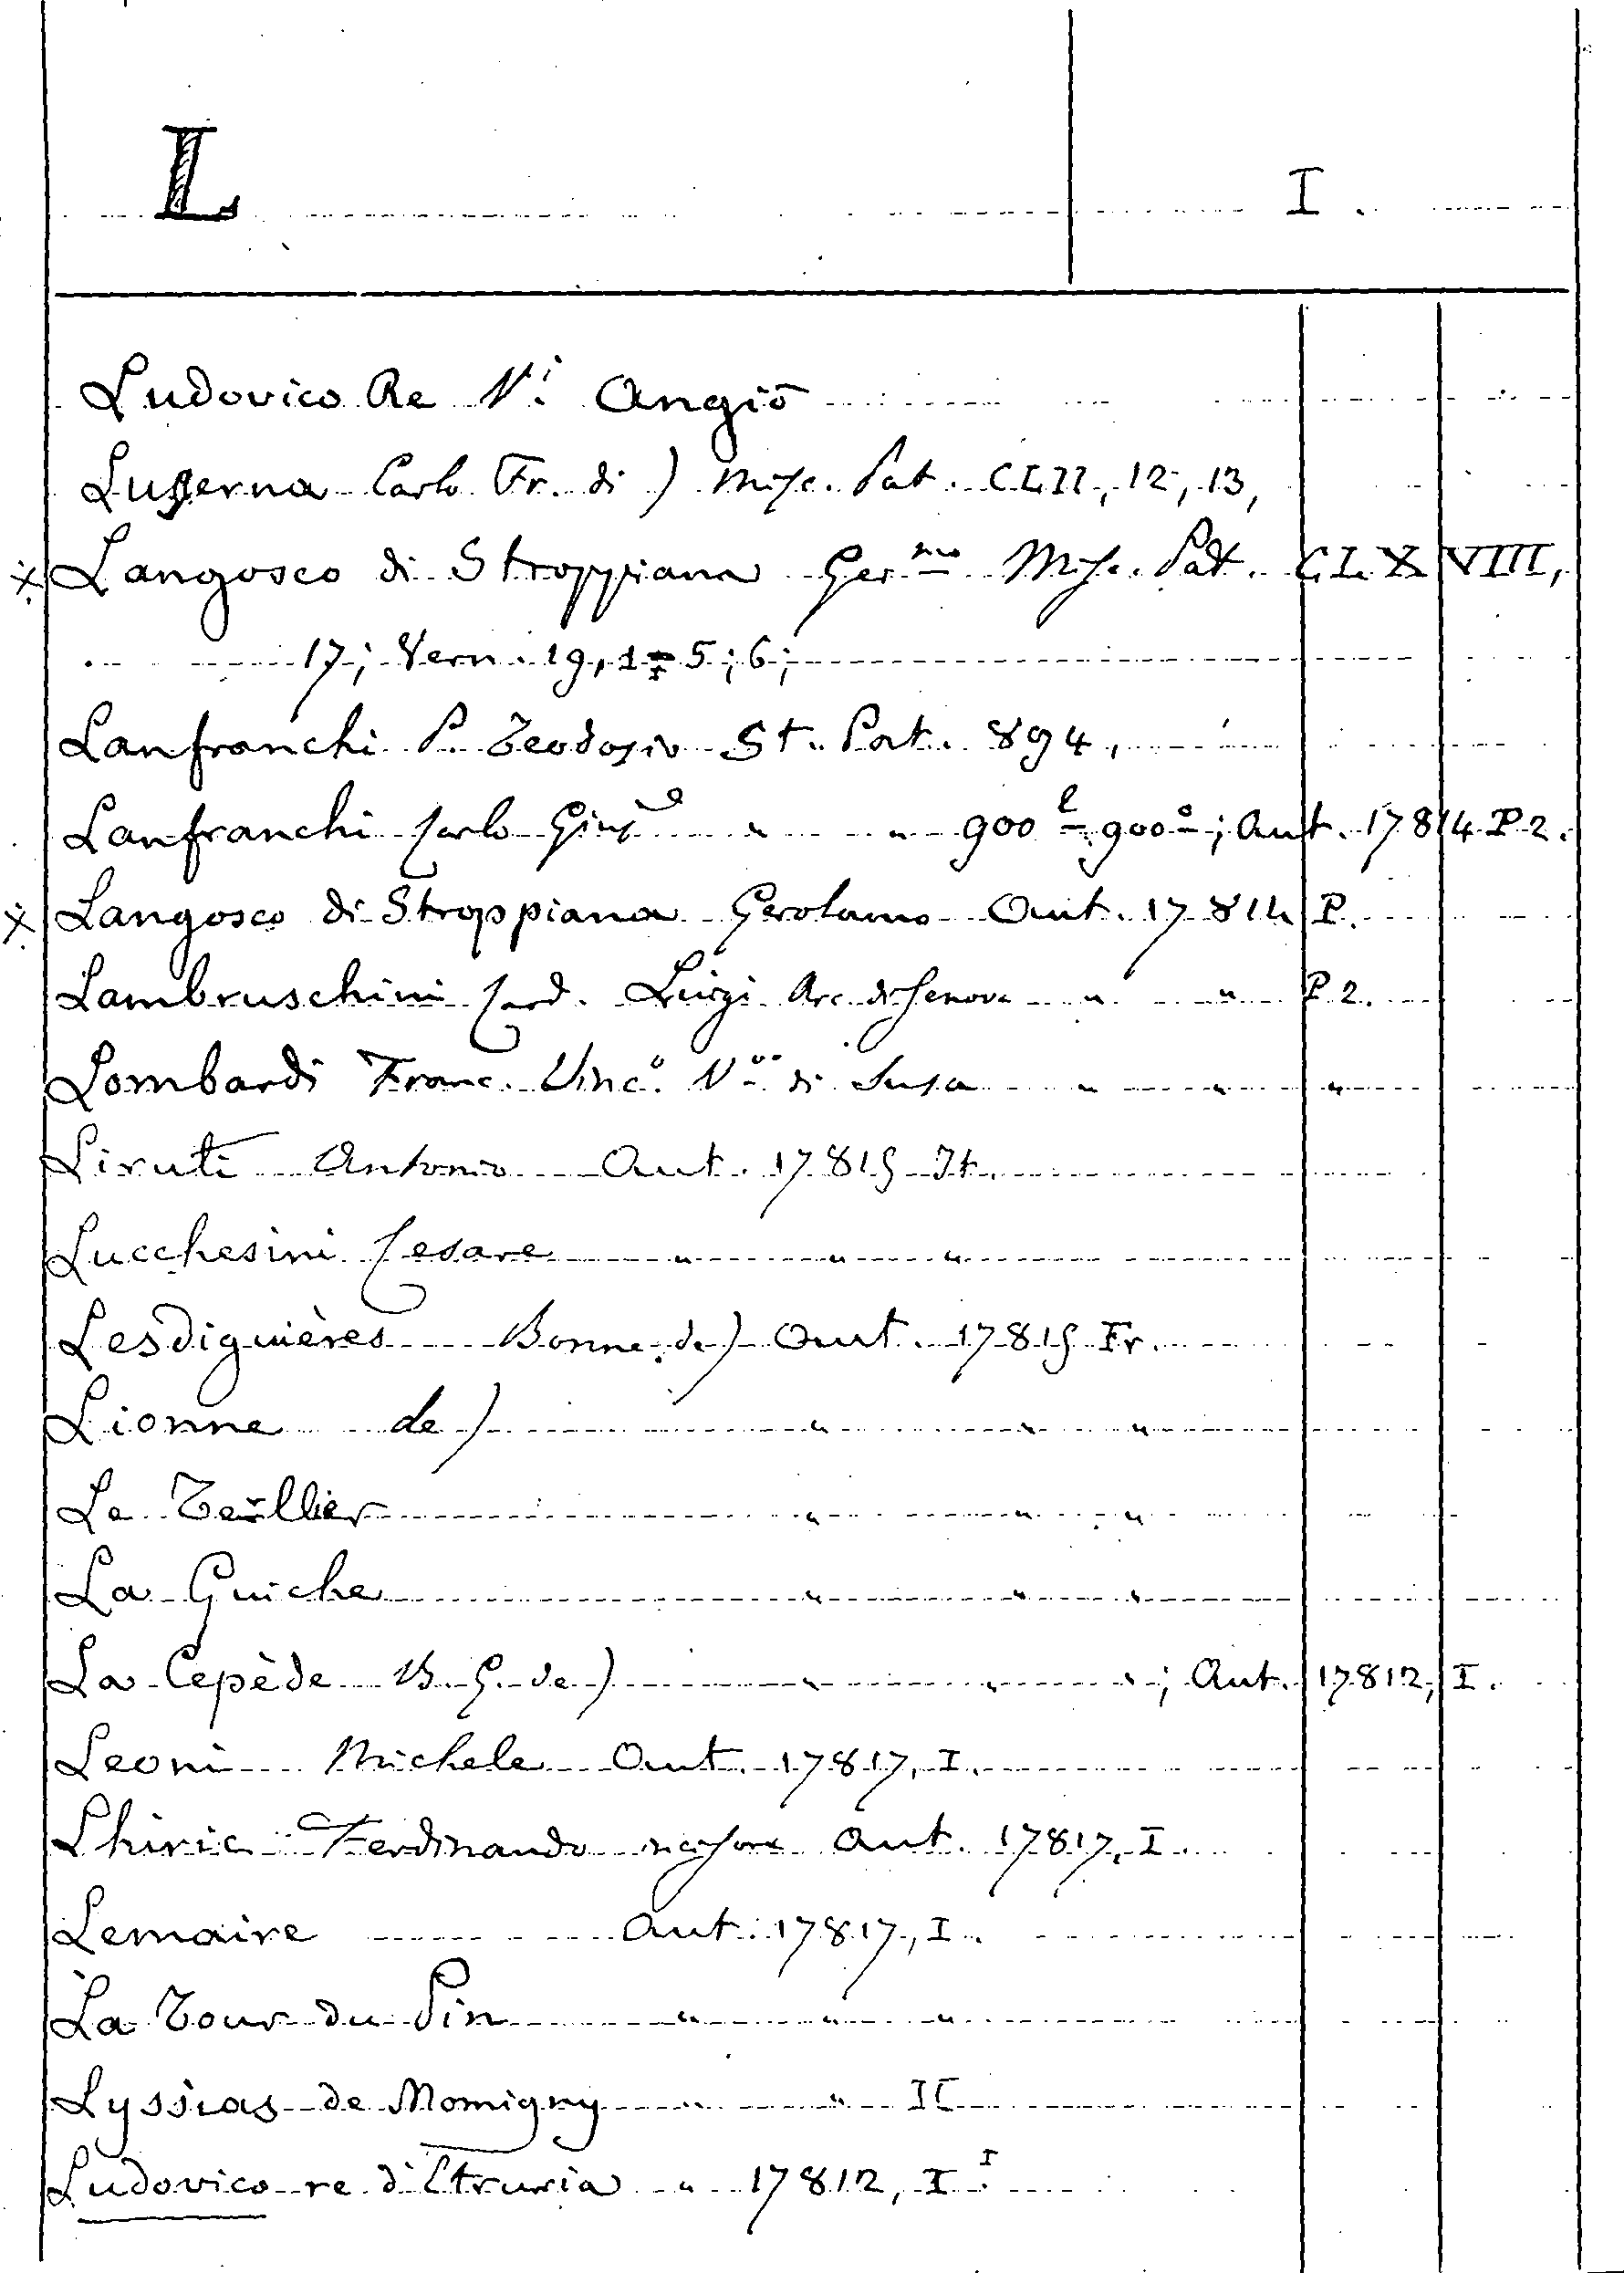 L I.
Ludovico Re V.i Angiò
Luserna Carlo Fr. di) Misc. Pat. CLII, 12, 13,
x Langosco di Stroppiana Ger.mo Misc. Pat. CLXVIII,
17; Vern. 19, 1=5; 6;
Lanfranchi P. Teodosio St. Pat. 894,
Lanfranchi Carlo Gius.e " " 900 - 900; Aut. 17814 P 2.
x Langosco di Stroppiana Gerolamo Aut. 17814 P.
Lambruschini Card. Luigi Arc. di Genova " " P 2.
Lombardi Franc. Vinc.o V.vo di Susa " " "
Liruti Antonio Aut. 17815 It.
Lucchesini Cesare " " "
Lesdiguières Bonne de) Aut. 17815 Fr.
Lionne de) " " "
Le Teillier " " "
La Guiche " " "
La Cepède B. G. de) " " "; Aut. 17812, I.
Leoni Michele Aut. 17817, I.
Lhiric Ferdinando Aut. 17817, I.
Lemaire Aut. 17817, I.
La Tour du Pin " " "
Lyssias de Momigny " " II
Ludovico re d'Etruria " 17812, I.I